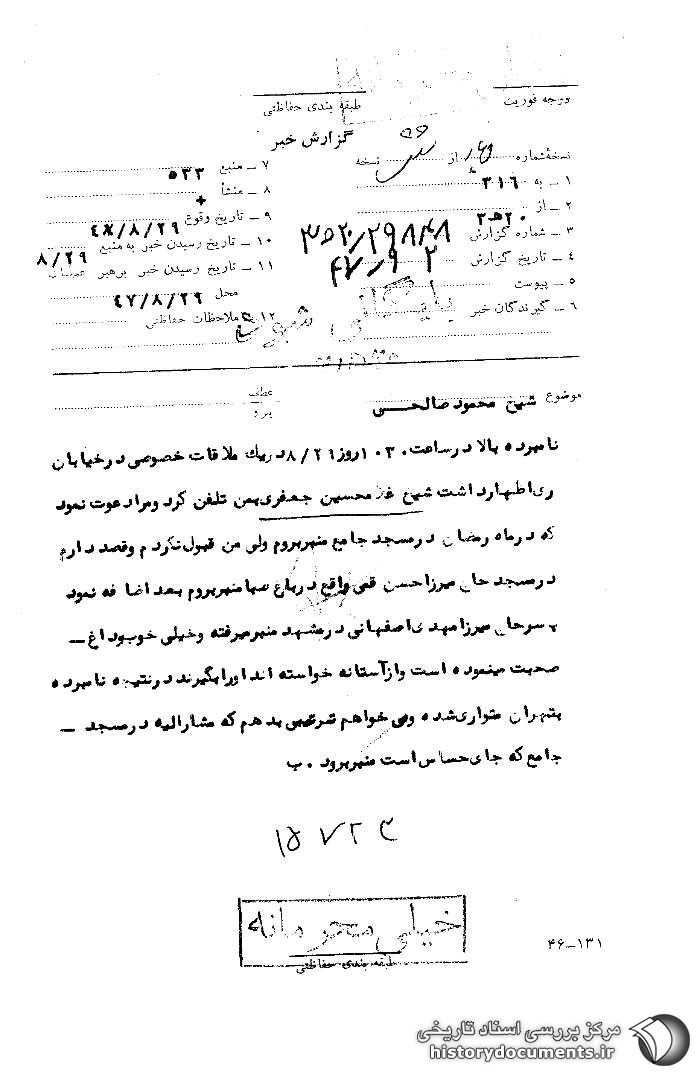 درجه فوریت
طبقه بندی حفاظتی
گزارش خبر
نسخهٔ شماره از نسخه
۱ ـ به ۳۱۶
۲ ـ از ۲۰ ه ۲
۳ ـ شماره گزارش
۴ ـ تاریخ گزارش
۵ ـ پیوست
۶ ـ گیرندگان خبر
۷ ـ منبع ۵۳۳
۸ ـ منشأ
۹ ـ تاریخ وقوع ۴۷/۸/۲۹
۱۰ ـ تاریخ رسیدن خبر به منبع ۸/۲۹
۱۱ ـ تاریخ رسیدن خبر برهبر عملیات
محل ۴۷/۸/۲۹
۱۲ ـ ملاحظات حفاظتی
بایگانی شود
موضوع شیخ محمود صالحی
عطف
پیرو
نامبرده بالا درساعت ۱۰۳۰ روز ۸/۲۶ دریك ملاقات خصوصی درخیابان
ری اظهارداشت شیخ غلامحسین جعفری بمن تلفن کرد ومرادعوت نمود
که درماه رمضان درمسجد جامع منبربروم ولی من قبول نکردم وقصد دارم
درمسجد حاج میرزاحسن قمی واقع درباغ صبا منبربروم بعد اضافه نمود
پسرحاج میرزامهدی اصفهانی درمشهد منبرمیرفته وخیلی خوب وداغ ـ
صحبت مینموده است وازآستانه خواسته اند اورابگیرند درنتیجه نامبرده
بتهران متواری شده ومی خواهم ترتیبی بدهم که مشارالیه درمسجد ـ
جامع که جای حساس است منبربرود . ب
۱۵۷۲۳
خیلی محرمانه
طبقه بندی حفاظتی
۴۶-۱۳۱
مرکز بررسی اسناد تاریخی
historydocuments.ir